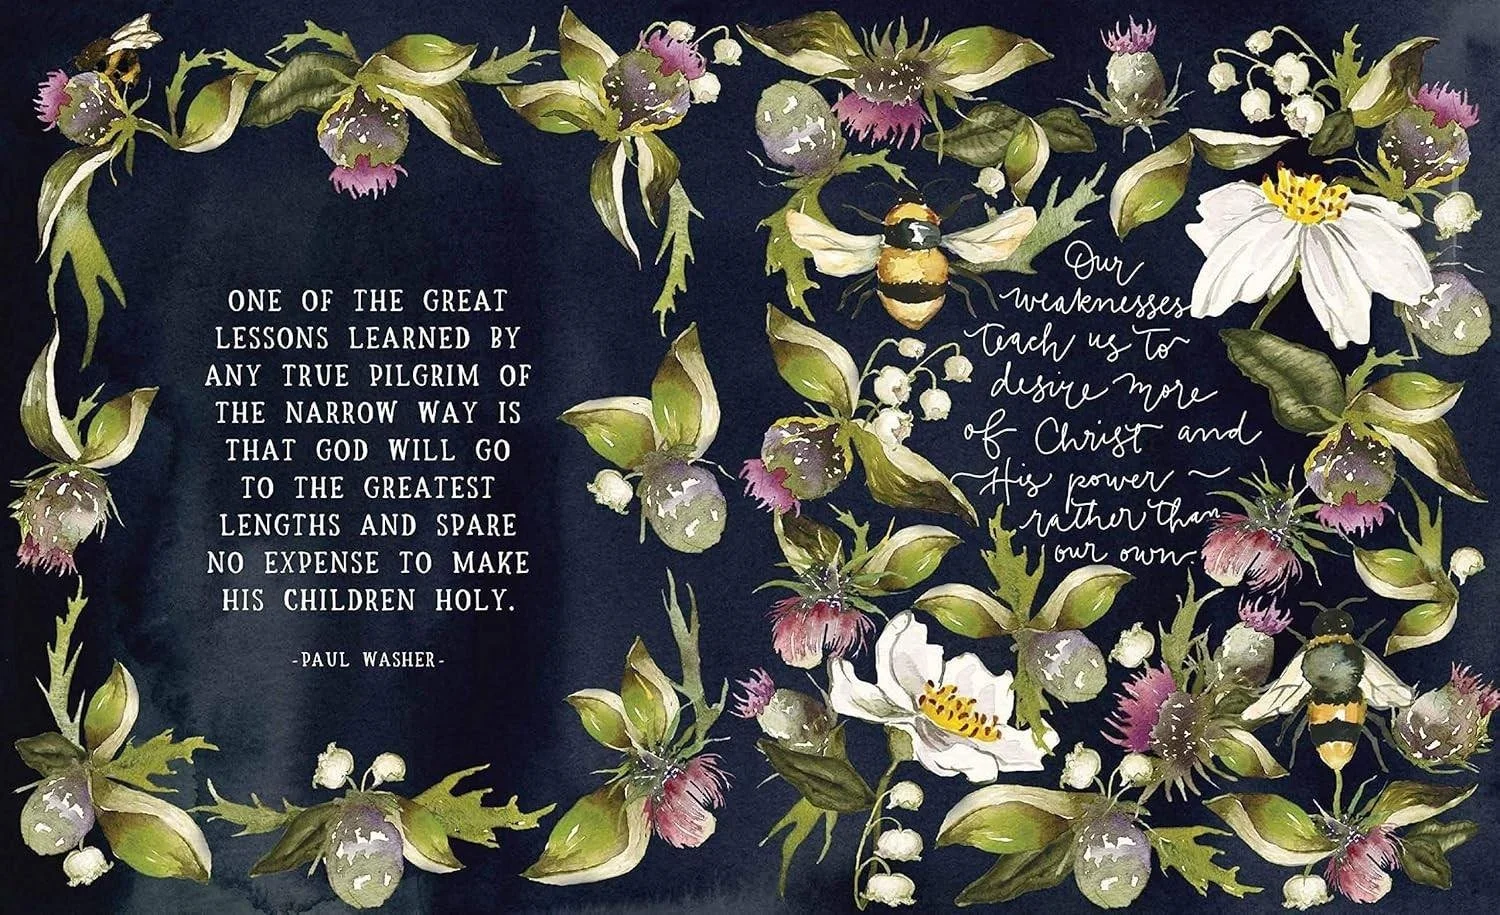 ONE OF THE GREAT
LESSONS LEARNED BY
ANY TRUE PILGRIM OF
THE NARROW WAY IS
THAT GOD WILL GO
TO THE GREATEST
LENGTHS AND SPARE
NO EXPENSE TO MAKE
HIS CHILDREN HOLY.
-PAUL WASHER-
Our
weaknesses
teach us to
desire more
of Christ and
His power
rather than
our own.